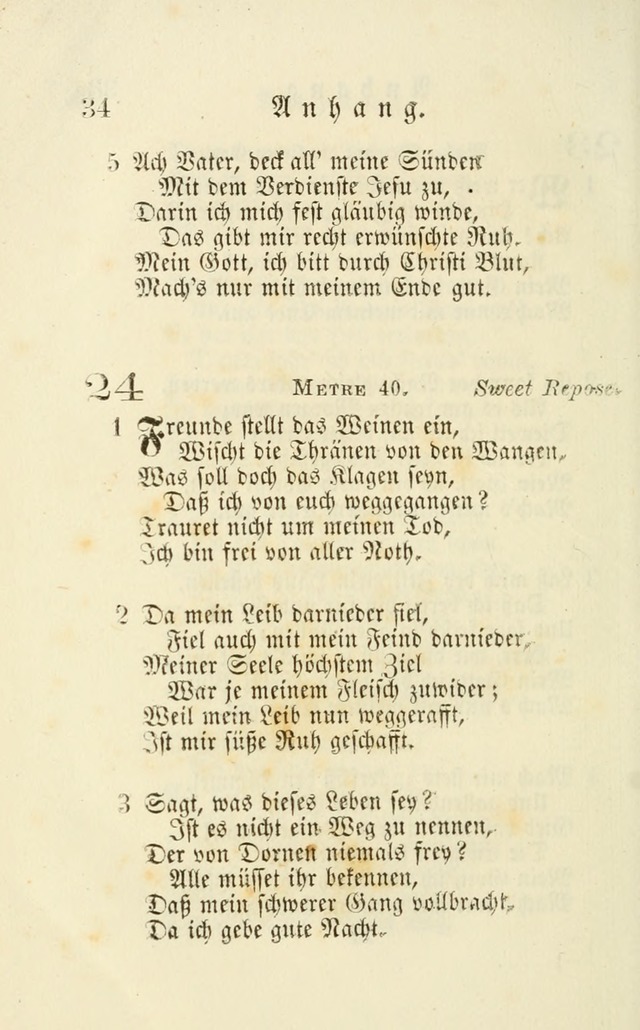 34 Anhang.
5 Ach Vater, deck all' meine Sünden
Mit dem Verdienste Jesu zu,
Darin ich mich fest gläubig winde,
Das gibt mir recht erwünschte Ruh.
Mein Gott, ich bitt durch Christi Blut,
Mach's nur mit meinem Ende gut.
24 METRE 40. Sweet Repose.
1 Freunde stellt das Weinen ein,
Wischt die Thränen von den Wangen,
Was soll doch das Klagen seyn,
Daß ich von euch weggegangen?
Trauret nicht um meinen Tod,
Ich bin frei von aller Noth.
2 Da mein Leib darnieder fiel,
Fiel auch mit mein Feind darnieder,
Meiner Seele höchstem Ziel
War je meinem Fleisch zuwider;
Weil mein Leib nun weggerafft,
Ist mir süße Ruh geschafft.
3 Sagt, was dieses Leben sey?
Ist es nicht ein Weg zu nennen,
Der von Dornen niemals frey?
Alle müsset ihr bekennen,
Daß mein schwerer Gang vollbracht,
Da ich gebe gute Nacht.